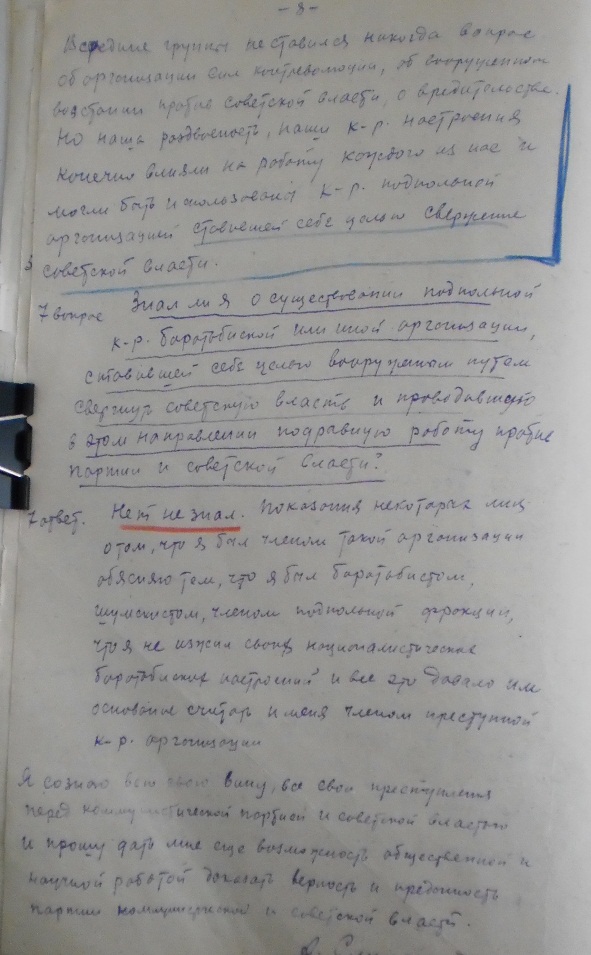 - 8 -
В середине группы не ставился никогда вопрос
об организации сил контрреволюции, об вооруженном
восстании против советской власти, о вредительстве.
Но наша раздвоенность, наши к-р. настроения
конечно влияли на работу каждого из нас и
могли быть использованы к-р. подпольной
организацией ставившей себе целью свержение
советской власти.
7 вопрос Знал ли я о существовании подпольной
к-р. боротьбиской или иной организации,
ставившей себе целью вооруженном путем
свергнуть советскую власть и проводившую
в этом направлении подрывную работу против
партии и советской власти?
7 ответ. Нет не знал. Показания некоторых лиц
о том, что я был членом такой организации
обясняю тем, что я был боротьбистом,
шумскистом, членом подпольной фракции,
что я не изжил своих националистических
боротьбиских настроений и все это давало им
основание считать и меня членом преступной
к-р. организации
Я сознаю всю свою вину, все свои преступления
перед коммунистической партией и советской властью
и прошу дать мне еще возможность общественной и
научной работой доказать верность и преданность
партии коммунистической и советской власти.